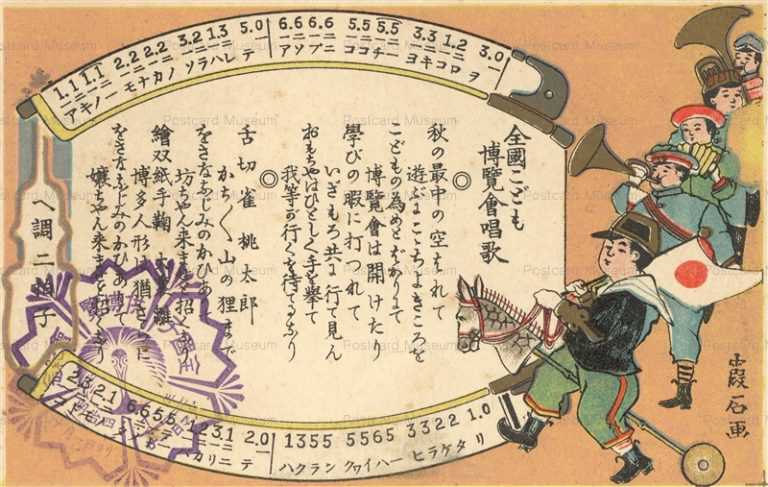 全國こども
博覽會唱歌
秋の最中の空はれて
遊ぶにこゝちよきころを
こどもの為めとばかりにて
博覽會は開けたり
學びの暇に打つれて
いざもろ共に行て見ん
おもちやはひとしく手を擧て
我等が行くを待てるなり
舌切雀桃太郎
かち〱山の狸まで
をさなふじみのかひあり
坊ちやん来ませと招くなり
繪双紙手鞠
博多人形は猶さらに
をさなふじみのかひあり
孃ちやん来ませと招くなり
1.1 1.1 2.2 2.2 3.2 1.3 5.0 6.6 6.6 5.5 5.5 3.3 1.2 3.0
アキノー モナカノ ソラハレ テ アソブニ ココチー ヨキコロ ヲ
2.3 2.1 6.6 5.5 1.2 3.1 2.0 1355 5565 3322 1.0
カリニ テ ハクラン クヮイハー ヒラケタ リ
ヘ調二拍子
霞石画
Postcard Museum